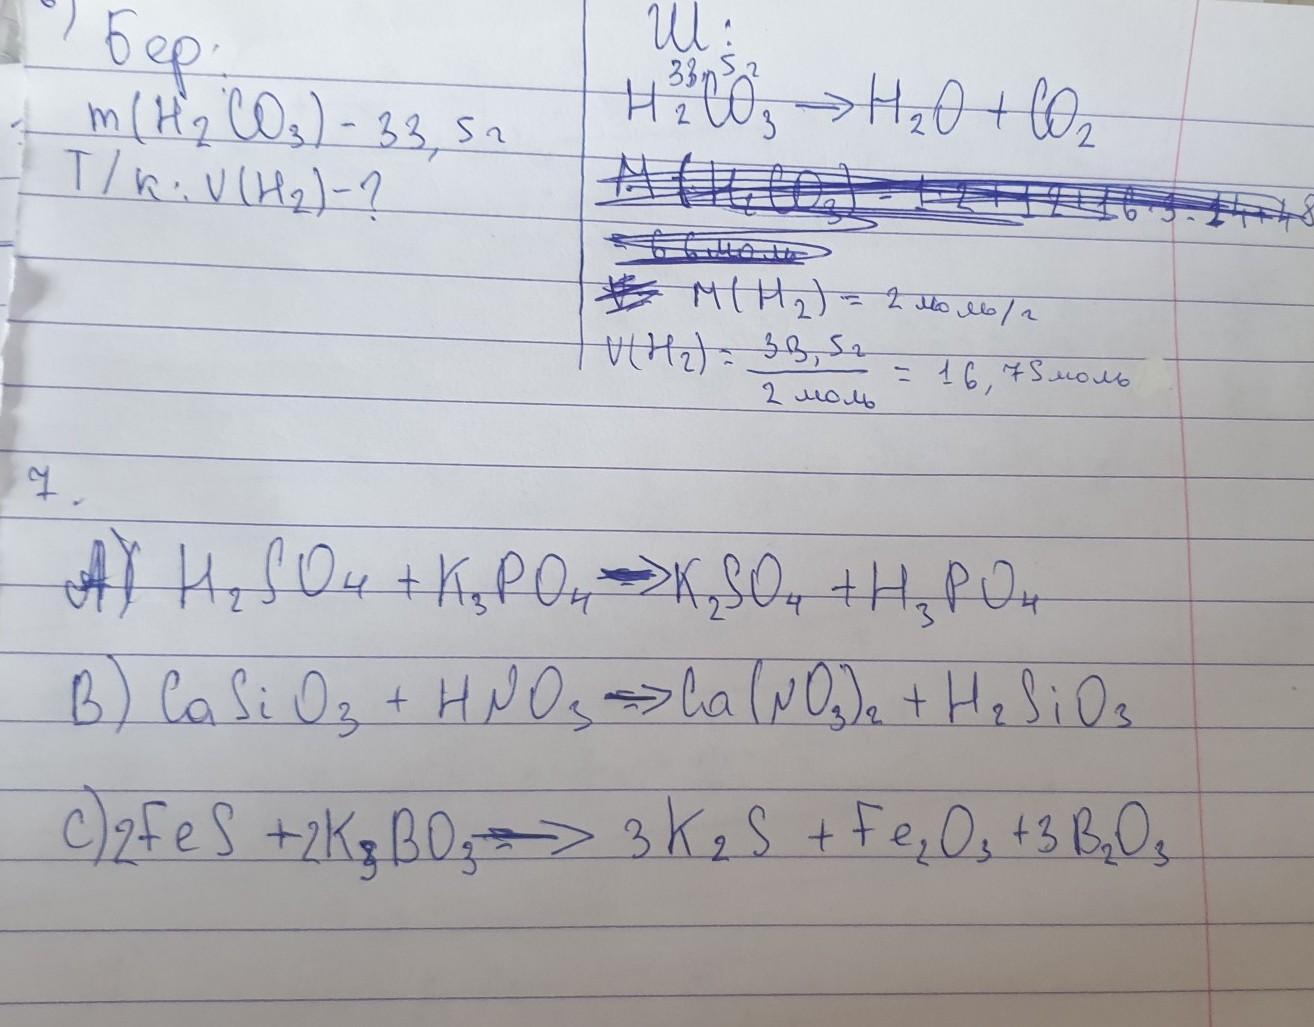 Бер:
m(H₂CO₃) - 33,5г
Т/к: V(H₂) - ?
Ш:
33,5г
H₂CO₃ → H₂O + CO₂
M(H₂) = 2 моль/г
V(H₂) = 33,5г / 2 моль = 16,75 моль
7.
A) H₂SO₄ + K₃PO₄ → K₂SO₄ + H₃PO₄
B) CaSiO₃ + HNO₃ ⇒ Ca(NO₃)₂ + H₂SiO₃
C) 2FeS + 2K₃BO₃ ⇒ 3K₂S + Fe₂O₃ + 3B₂O₃